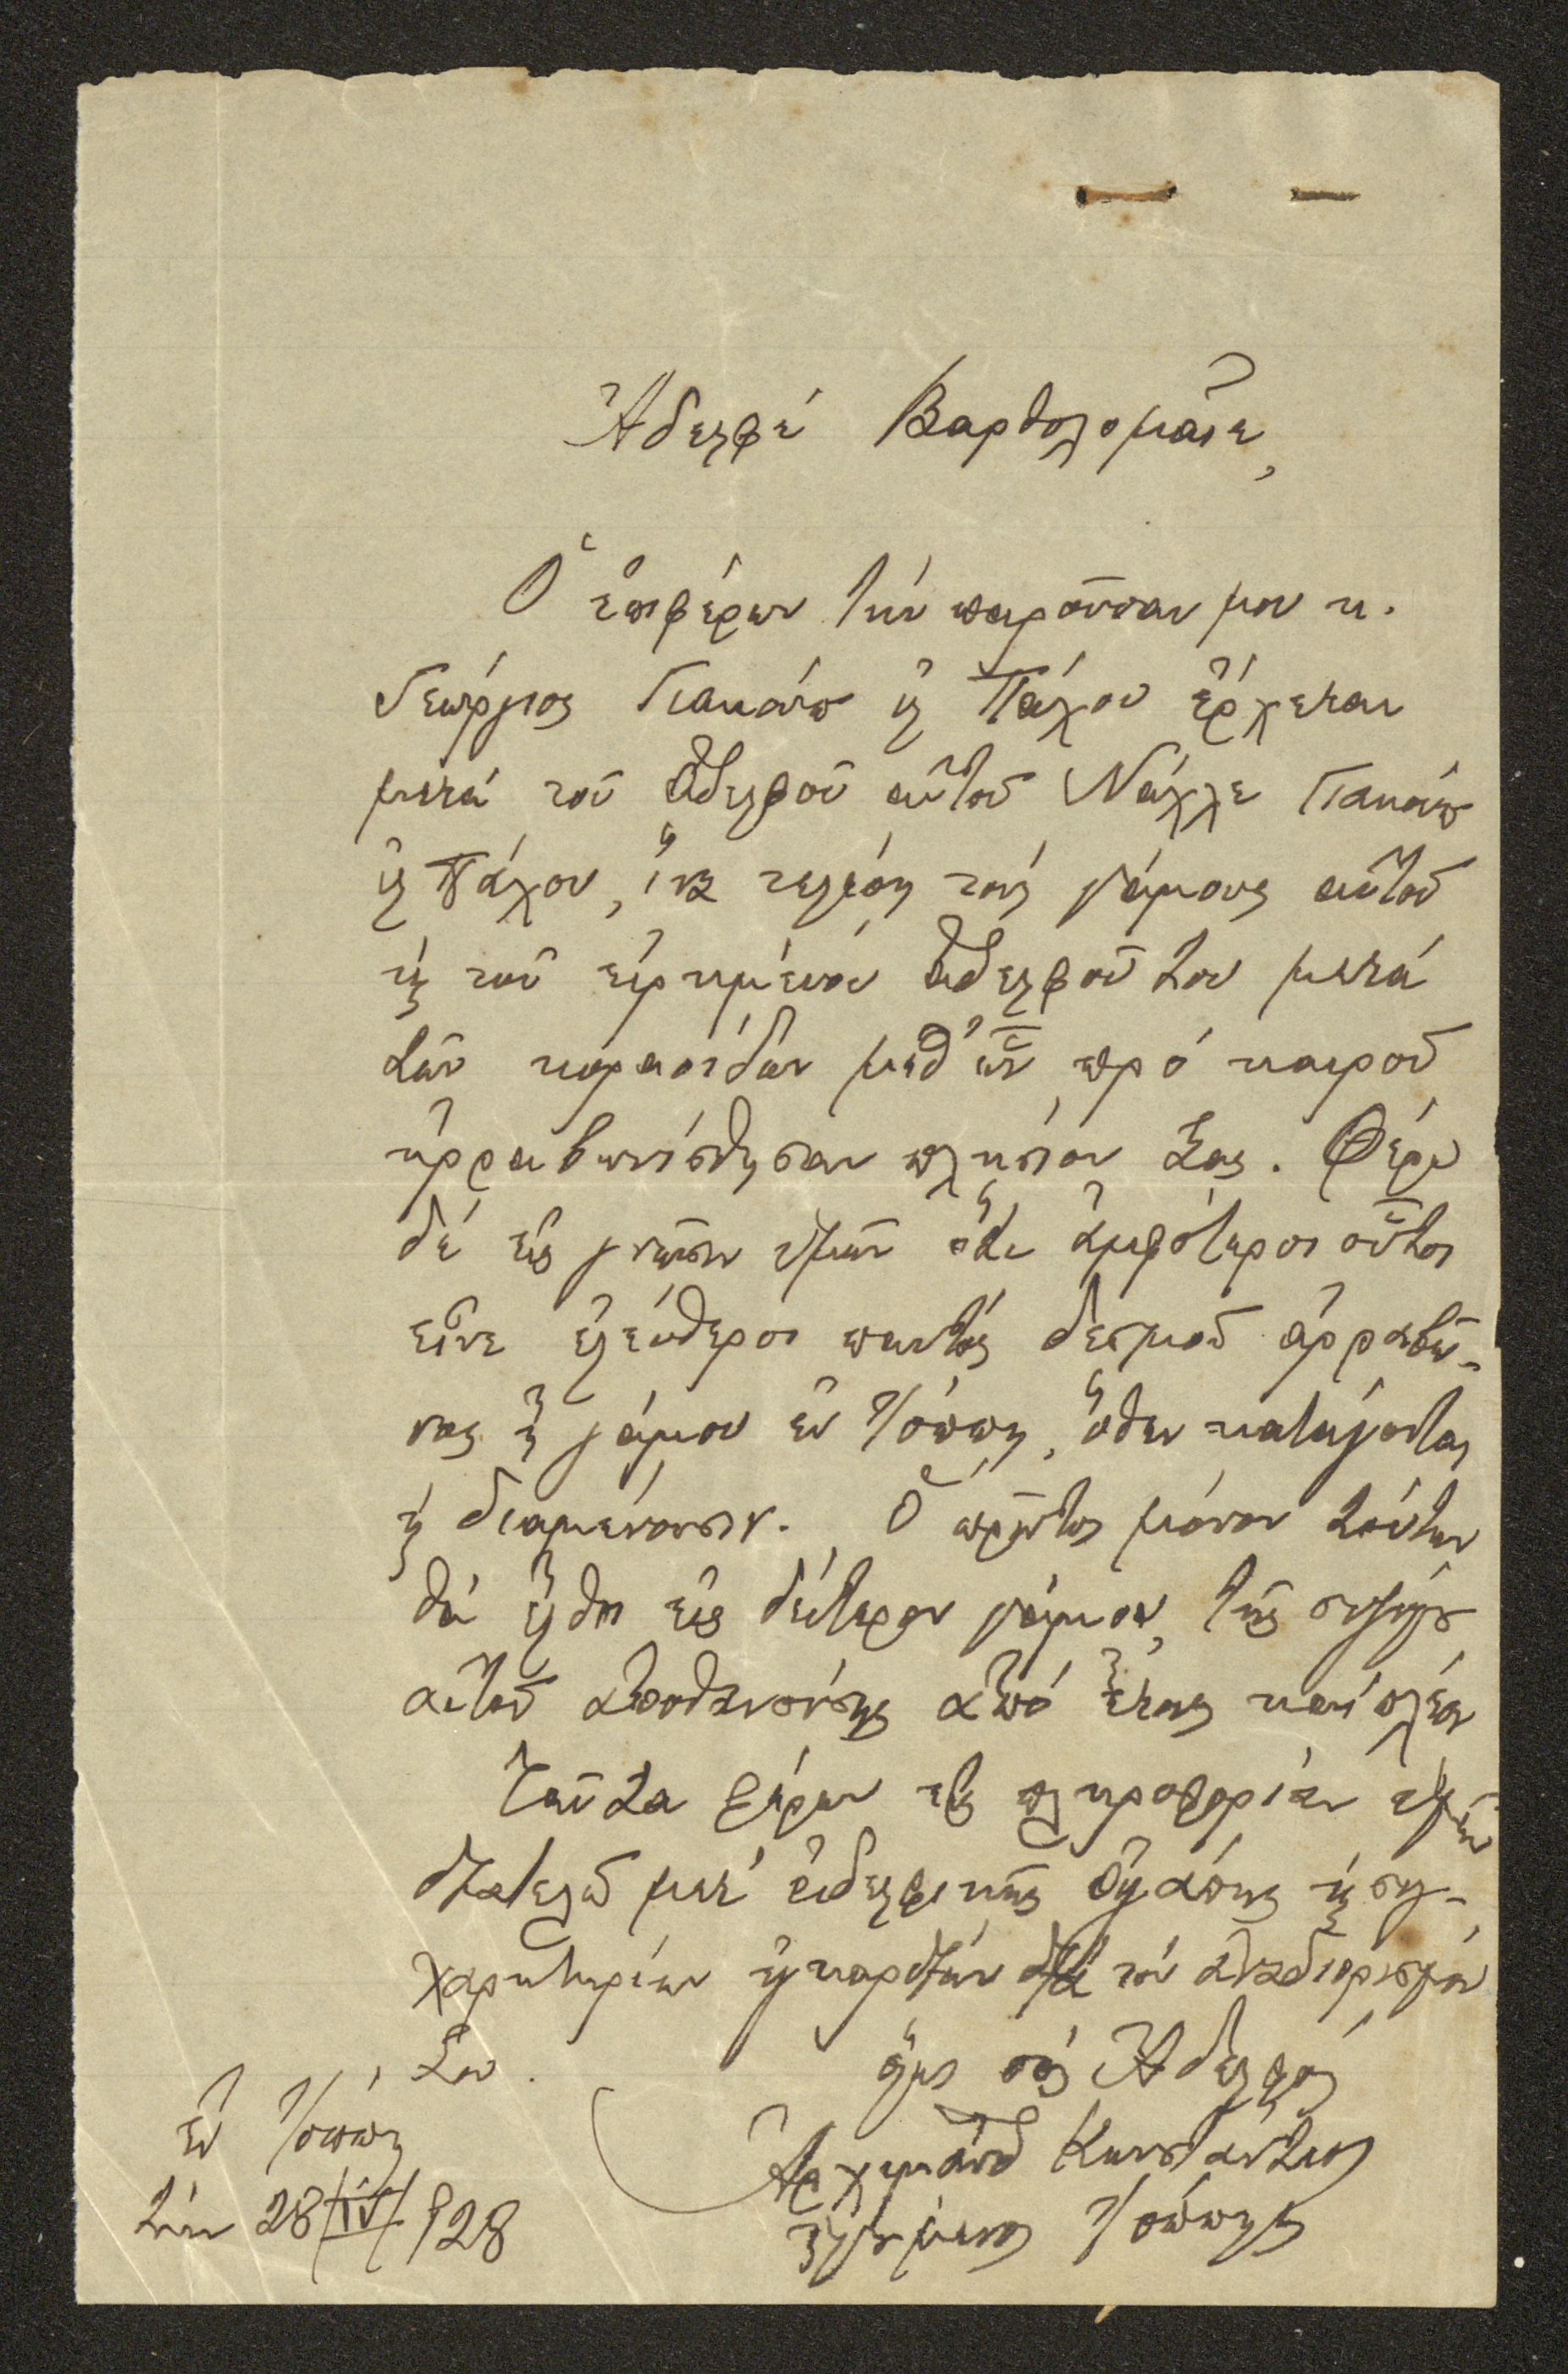 Ἀδελφέ Βαρθολομαῖε,
Ὁ ἐπιφέρων τήν παροῦσάν μου κ.
Γεώργιος Γιακούπ ἐλ Πάχου ἔρχεται
μετά τοῦ ἀδελφοῦ αὐτοῦ Νάχλε Γιακούπ
ἐλ Πάχου, ἵνα τελέσῃ τούς γάμους αὐτοῦ
κ τοῦ εἰρημένου ἀδελφοῦ του μετά
τῶν κορασίδων μεθ' ὧν πρό καιροῦ
ἠρραβωνίσθησαν πλησίον Σας. Φέρω
δέ εἰς γνῶσιν ὑμῶν ὅτι ἀμφότεροι οὗτοι
εἶνε ἐλεύθεροι παντός δεσμοῦ ἀρραβῶ-
νος ἤ γάμου ἐν Ἰόππῃ, ὅθεν κατάγονται
κ διαμένουσιν. Ὁ πρῶτος μόνον τούτων
θά ἔλθῃ εἰς δεύτερον γάμον, τῆς συζύγου
αὐτοῦ ἀποθανούσης ἀπό ἔτους καί πλέον
Ταῦτα φέρων εἰς πληροφορίαν ὑμῶν
διατελῶ μετ' ἀδελφικῆς ἀγάπης κ συγ-
χαρητηρίων ἐγκαρδίων διά τόν ἀναδιορισμόν
Σου.
ὅλως σός Ἀδελφός
Ἀρχιμανδ Κωνσταντῖνος
ἡγούμενος Ἰόππης
ἐν Ἰόππῃ
τήν 28/IV/928